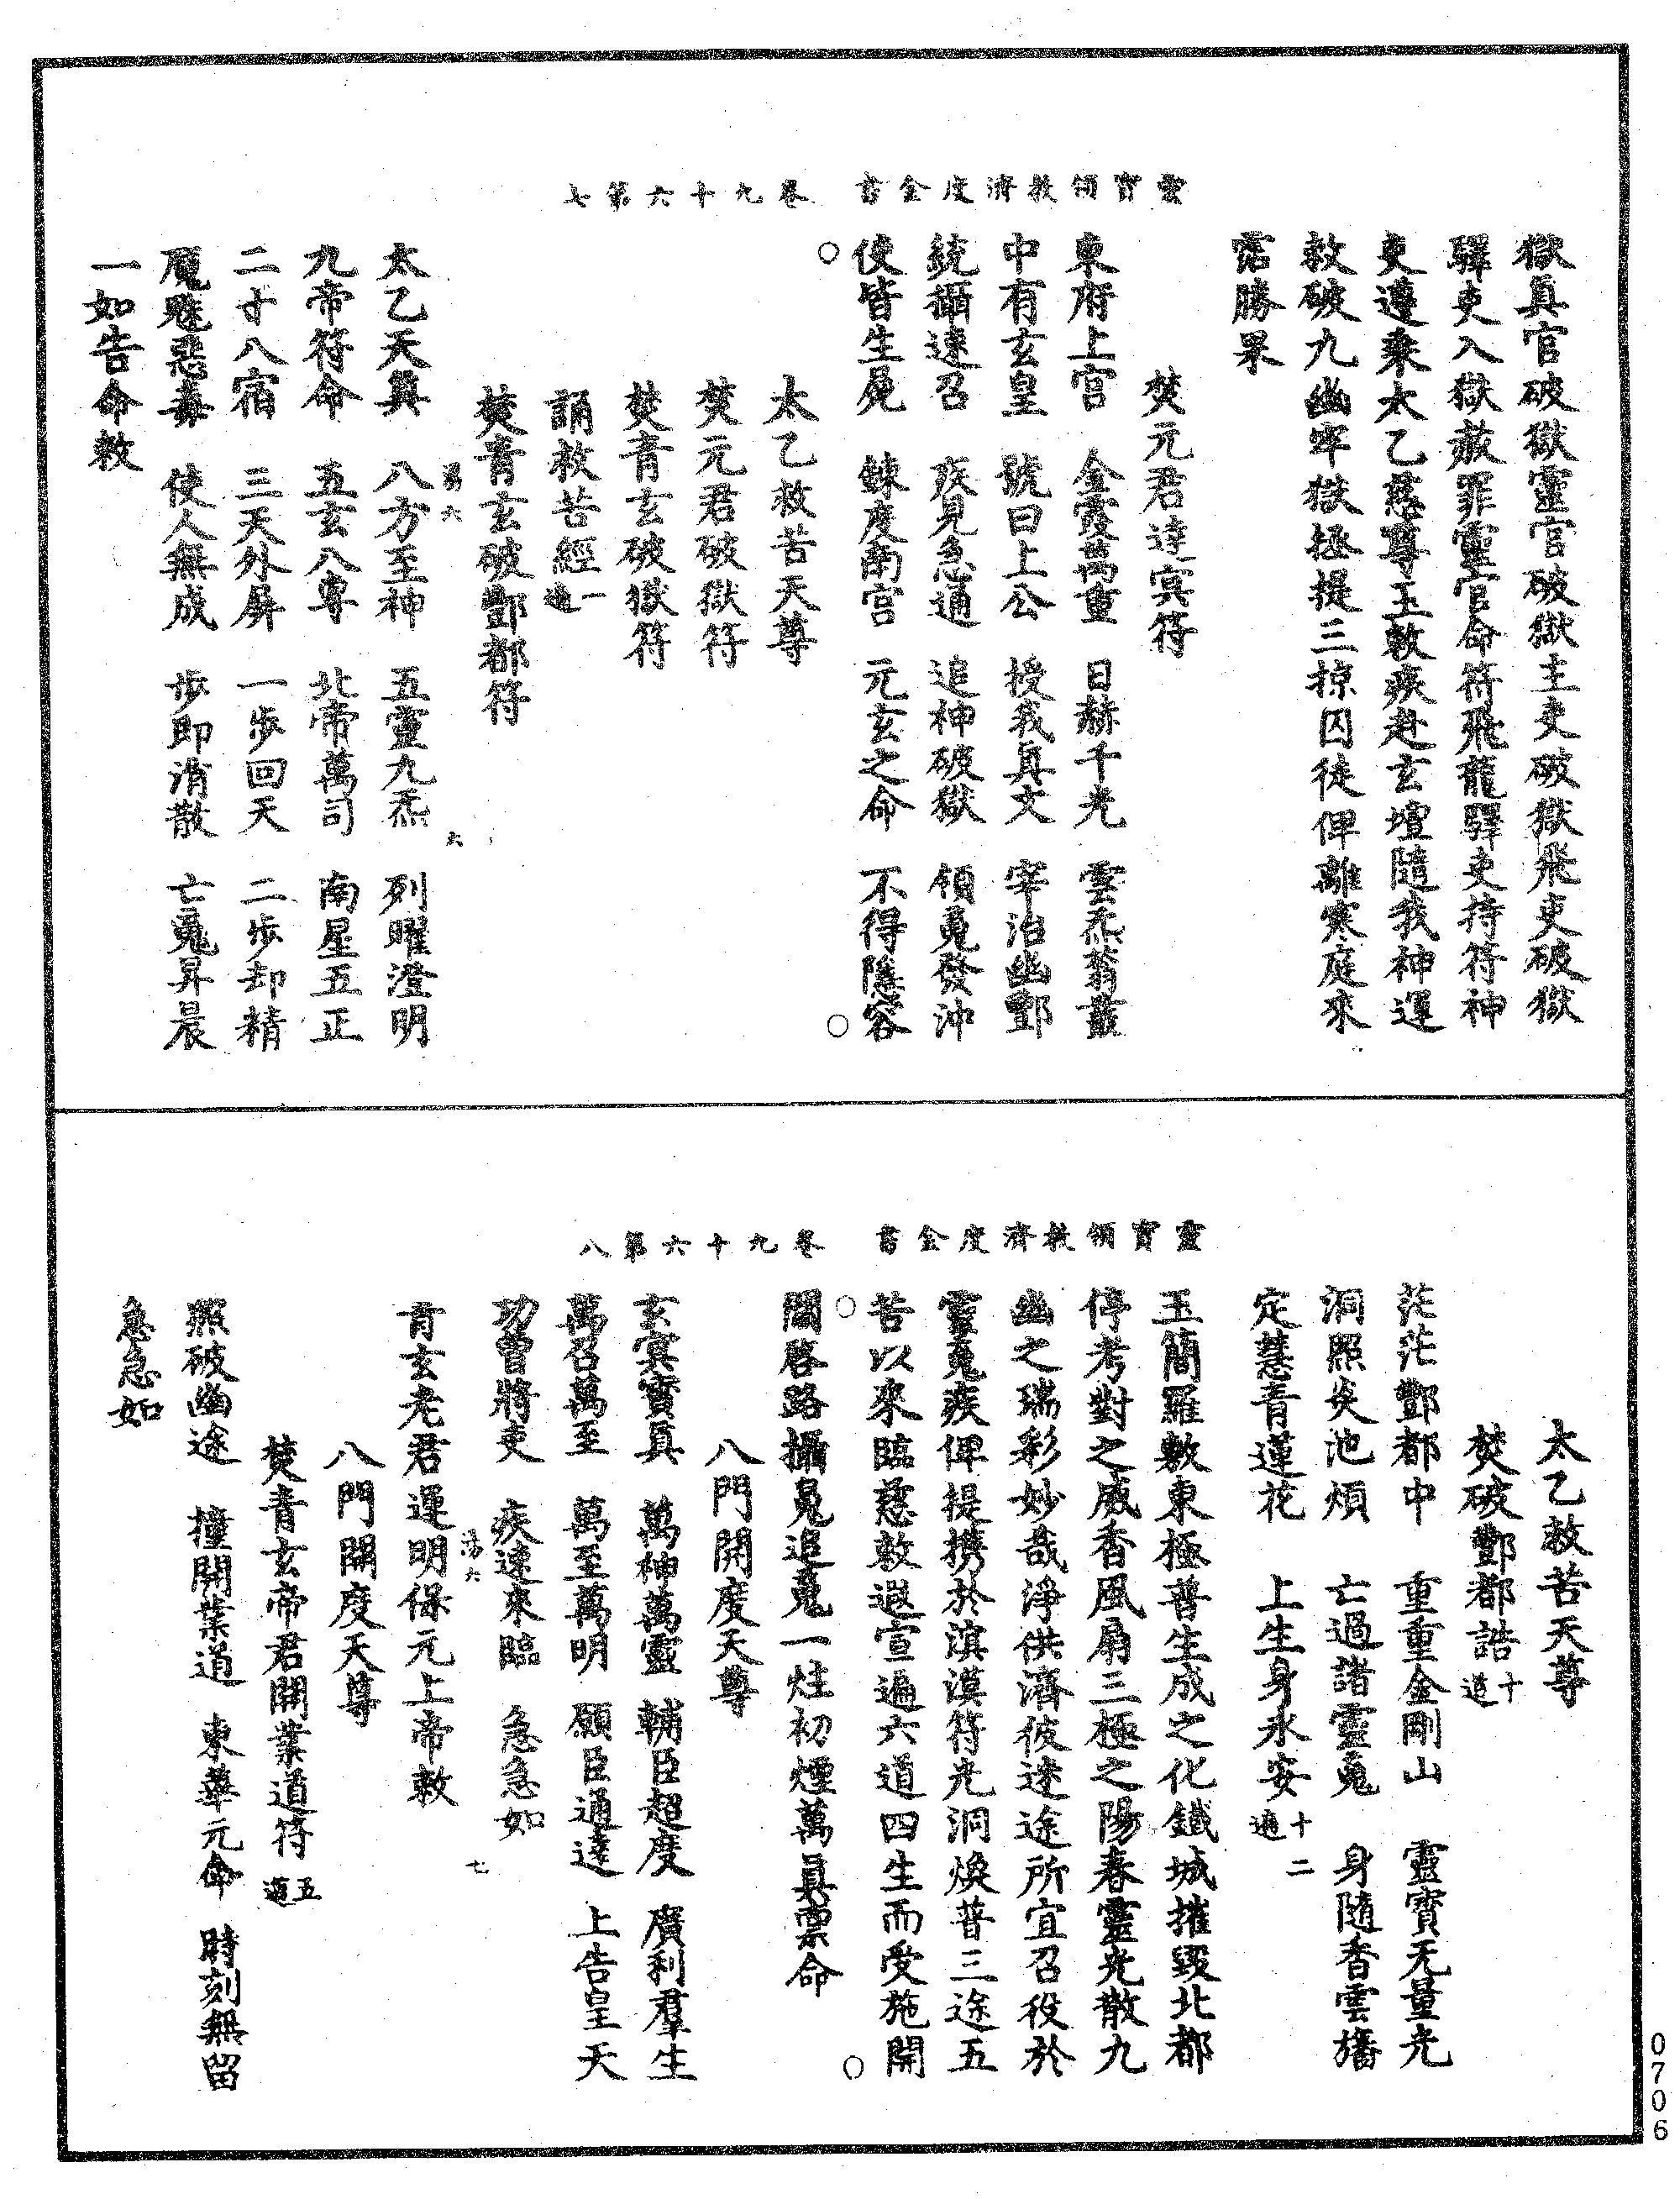 靈寶領教濟度金書　卷九十六第七
獄真官破獄靈官破獄主吏破獄飛吏破獄
驛吏入獄赦罪靈官命符飛龍驛吏持符神
吏遵乘太乙慈尊玉敕疾赴玄壇隨我神運
敕破九幽牢獄拯提三掠囚徒俾離寒庭來
霑勝果
焚元君達冥符
東府上宮　金霞萬重　日赫千光　雲炁蓊藂
中有玄皇　號曰上公　授我真文　宰治幽酆
統攝速召　疾見急通　追神破獄　領䰟發沖
使皆生屍　鍊度南宮　元玄之命　不得隱容
太乙救苦天尊
焚元君破獄符
焚青玄破獄符
誦救苦經一遍
焚青玄破酆都符
六
太乙天真　八方至神　五靈九炁　列曜澄明
九帝符命　五玄八專　北帝萬司　南星五正
二十八宿　三天外屏　一步回天　二步却精
魔魅惡毒　使人無成　步即消散　亡䰟昇晨
一如告命敕
靈寶領教濟度金書　卷九十六第八
太乙救苦天尊
焚破酆都誥十道
茫茫酆都中　重重金剛山　靈寶无量光
洞照炎池煩　亡過諸靈䰟　身隨香雲旛
定慧青蓮花　上生身永安十二遍
玉簡羅敷東極普生成之化鐵城摧毀北都
停考對之威香風扇三極之陽春靈光散九
幽之瑞彩妙哉淨供濟彼迷途所宜召役於
靈䰟疾俾提携於溟漠符光洞煥普三途五
苦以來臨慈敕遐宣遍六道四生而受施開
關啓路攝䰟追䰟一炷初煙萬真稟命
八門開度天尊
玄冥寶真　萬神萬靈　輔臣超度　廣利羣生
萬召萬至　萬至萬明　願臣通達　上告皇天
功曹將吏　疾速來臨　急急如
青玄老君運明保元上帝敕
七
八門開度天尊
焚青玄帝君開業道符五道
照破幽途　撞開業道　東華元命　時刻無留
急急如
0706